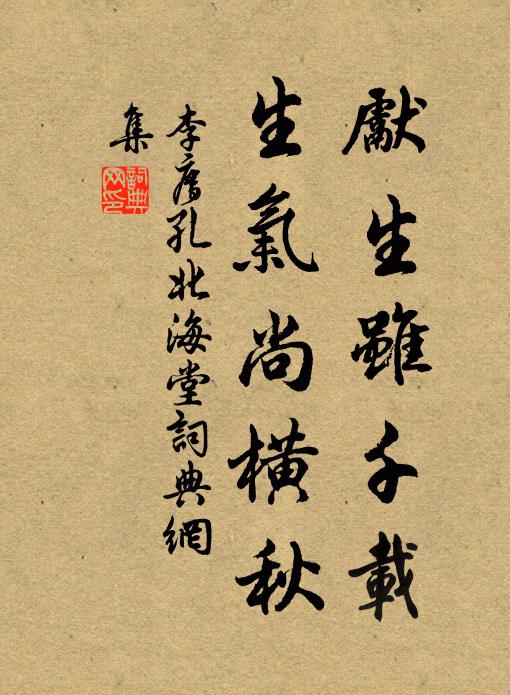 獻生雖千載
生氣尚橫秋
李廌孔北海堂詞典網
集
詞典網印